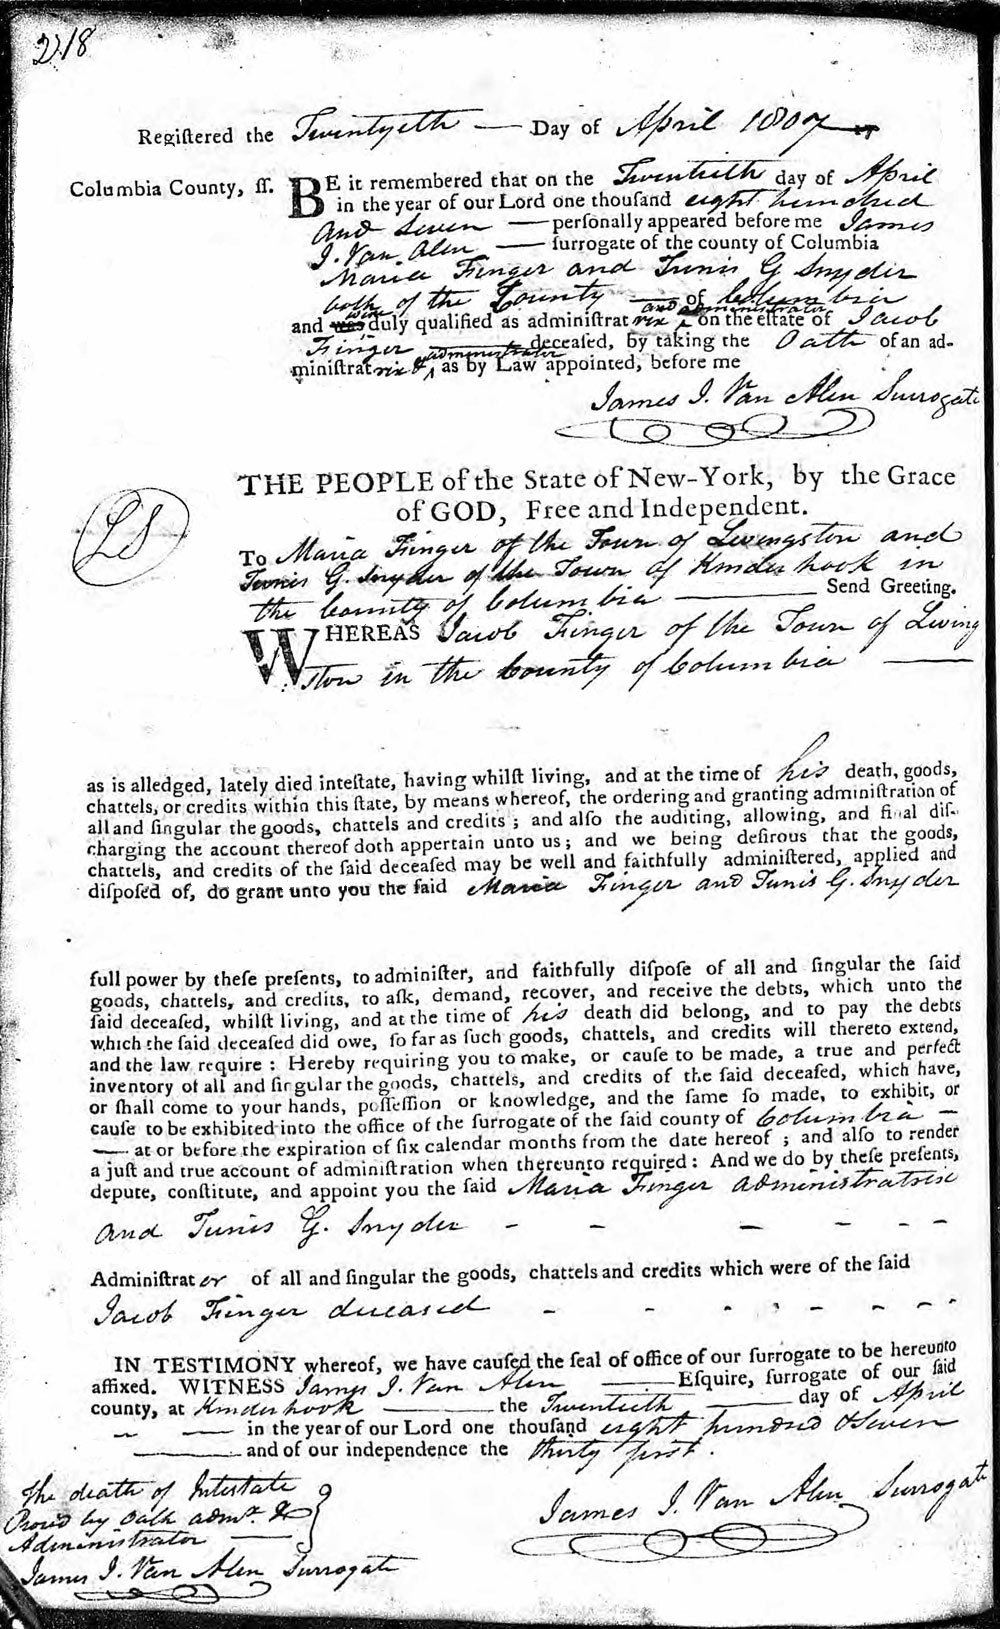 218
Regiſtered the Twentyeth — Day of April 1807
Columbia County, ſſ. BE it remembered that on the Twentieth day of April
in the year of our Lord one thouſand eight hundred
and Seven — perſonally appeared before me James
I. Van Alen — ſurrogate of the county of Columbia
Maria Finger and Tunis G Snyder
both of the County — of Columbia
and were duly qualified as adminiſtratrix and administrator on the eſtate of Jacob
Finger deceaſed, by taking the Oath of an ad-
miniſtratrix & administrator as by Law appointed, before me
James I. Van Alen Surrogate
THE PEOPLE of the State of New-York, by the Grace
of GOD, Free and Independent.
LS
To Maria Finger of the Town of Livingston and
Tunis G. Snyder of the Town of Kinderhook in
the County of Columbia — Send Greeting.
WHEREAS Jacob Finger of the Town of Living
ston in the County of Columbia —
as is alledged, lately died inteſtate, having whilſt living, and at the time of his death, goods,
chattels, or credits within this ſtate, by means whereof, the ordering and granting adminiſtration of
all and ſingular the goods, chattels and credits; and alſo the auditing, allowing, and final diſ-
charging the account thereof doth appertain unto us; and we being deſirous that the goods,
chattels, and credits of the ſaid deceaſed may be well and faithfully adminiſtered, applied and
diſpoſed of, do grant unto you the ſaid Maria Finger and Tunis G. Snyder
full power by theſe preſents, to adminiſter, and faithfully diſpoſe of all and ſingular the ſaid
goods, chattels, and credits, to aſk, demand, recover, and receive the debts, which unto the
ſaid deceaſed, whilſt living, and at the time of his death did belong, and to pay the debts
which the ſaid deceaſed did owe, ſo far as ſuch goods, chattels, and credits will thereto extend,
and the law require: Hereby requiring you to make, or cauſe to be made, a true and perfect
inventory of all and ſingular the goods, chattels, and credits of the ſaid deceaſed, which have,
or ſhall come to your hands, poſſeſſion or knowledge, and the ſame ſo made, to exhibit, or
cauſe to be exhibited into the office of the ſurrogate of the ſaid county of Columbia —
— at or before the expiration of ſix calendar months from the date hereof; and alſo to render
a juſt and true account of adminiſtration when thereunto required: And we do by theſe preſents,
depute, conſtitute, and appoint you the ſaid Maria Finger administratrix
and Tunis G. Snyder - - - - - -
Adminiſtrator of all and ſingular the goods, chattels and credits which were of the ſaid
Jacob Finger deceased - - - - - - - -
IN TESTIMONY whereof, we have cauſed the ſeal of office of our ſurrogate to be hereunto
affixed. WITNESS James I. Van Alen — Eſquire, ſurrogate of our ſaid
county, at Kinderhook — the Twentieth — day of April
— — in the year of our Lord one thouſand eight hundred & Seven
— and of our independence the thirty first.
James I. Van Alen Surrogate
The death of Intestate
Proved by Oath admx. &
Administrator —
James I. Van Alen Surrogate